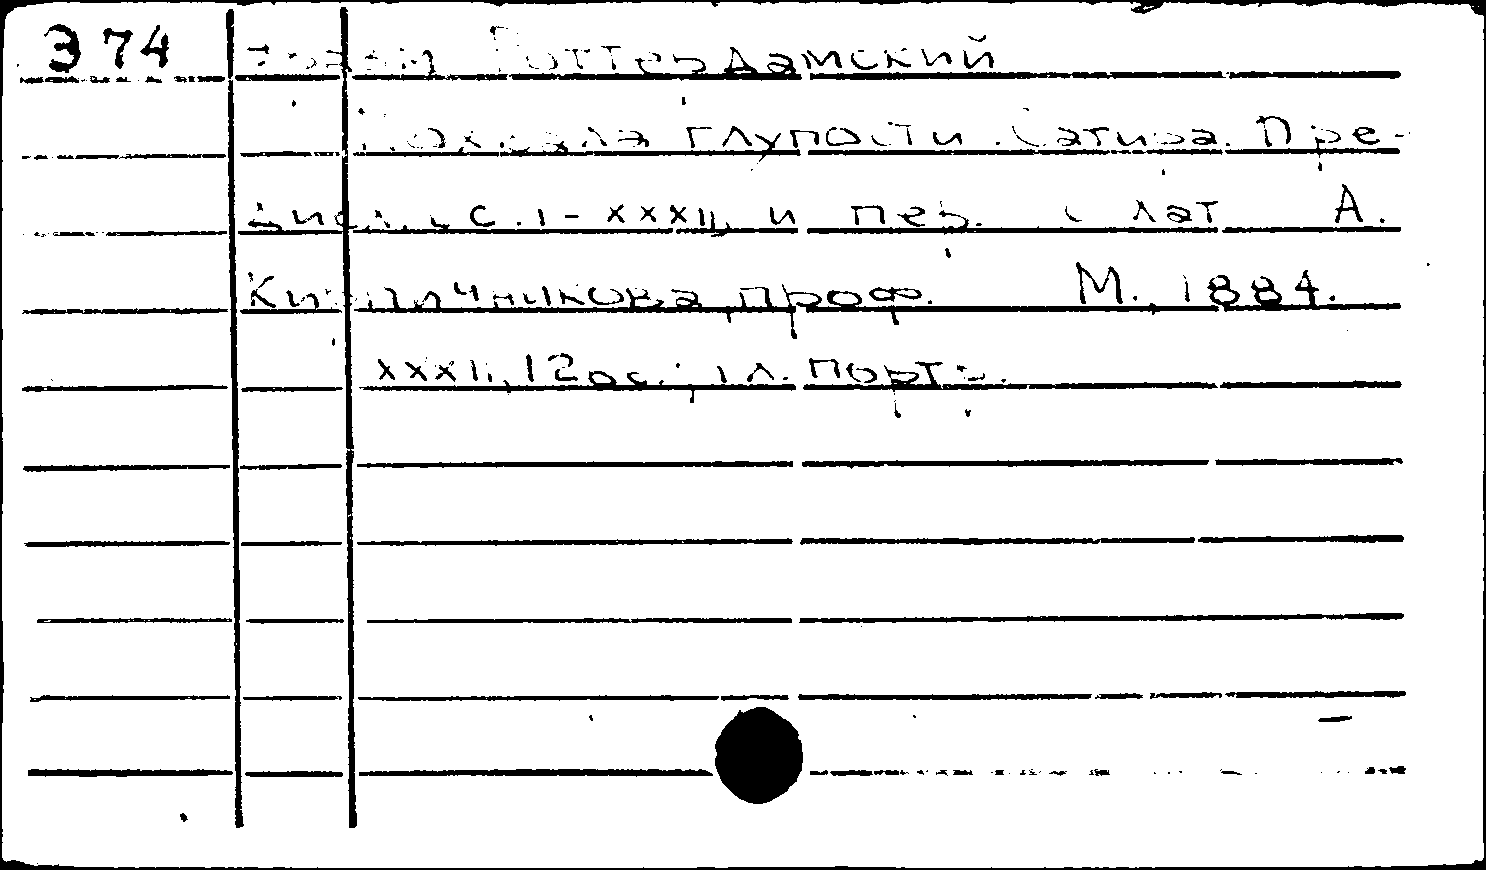 Э74 Эразм Роттердамский
Похвала глупости. Сатира. Пре-
дисл., с. I-XXXII, и пер. с лат. А.
Кирпичникова, проф. М., 1884.
XXXII, 120 с.; 1 л. портр.